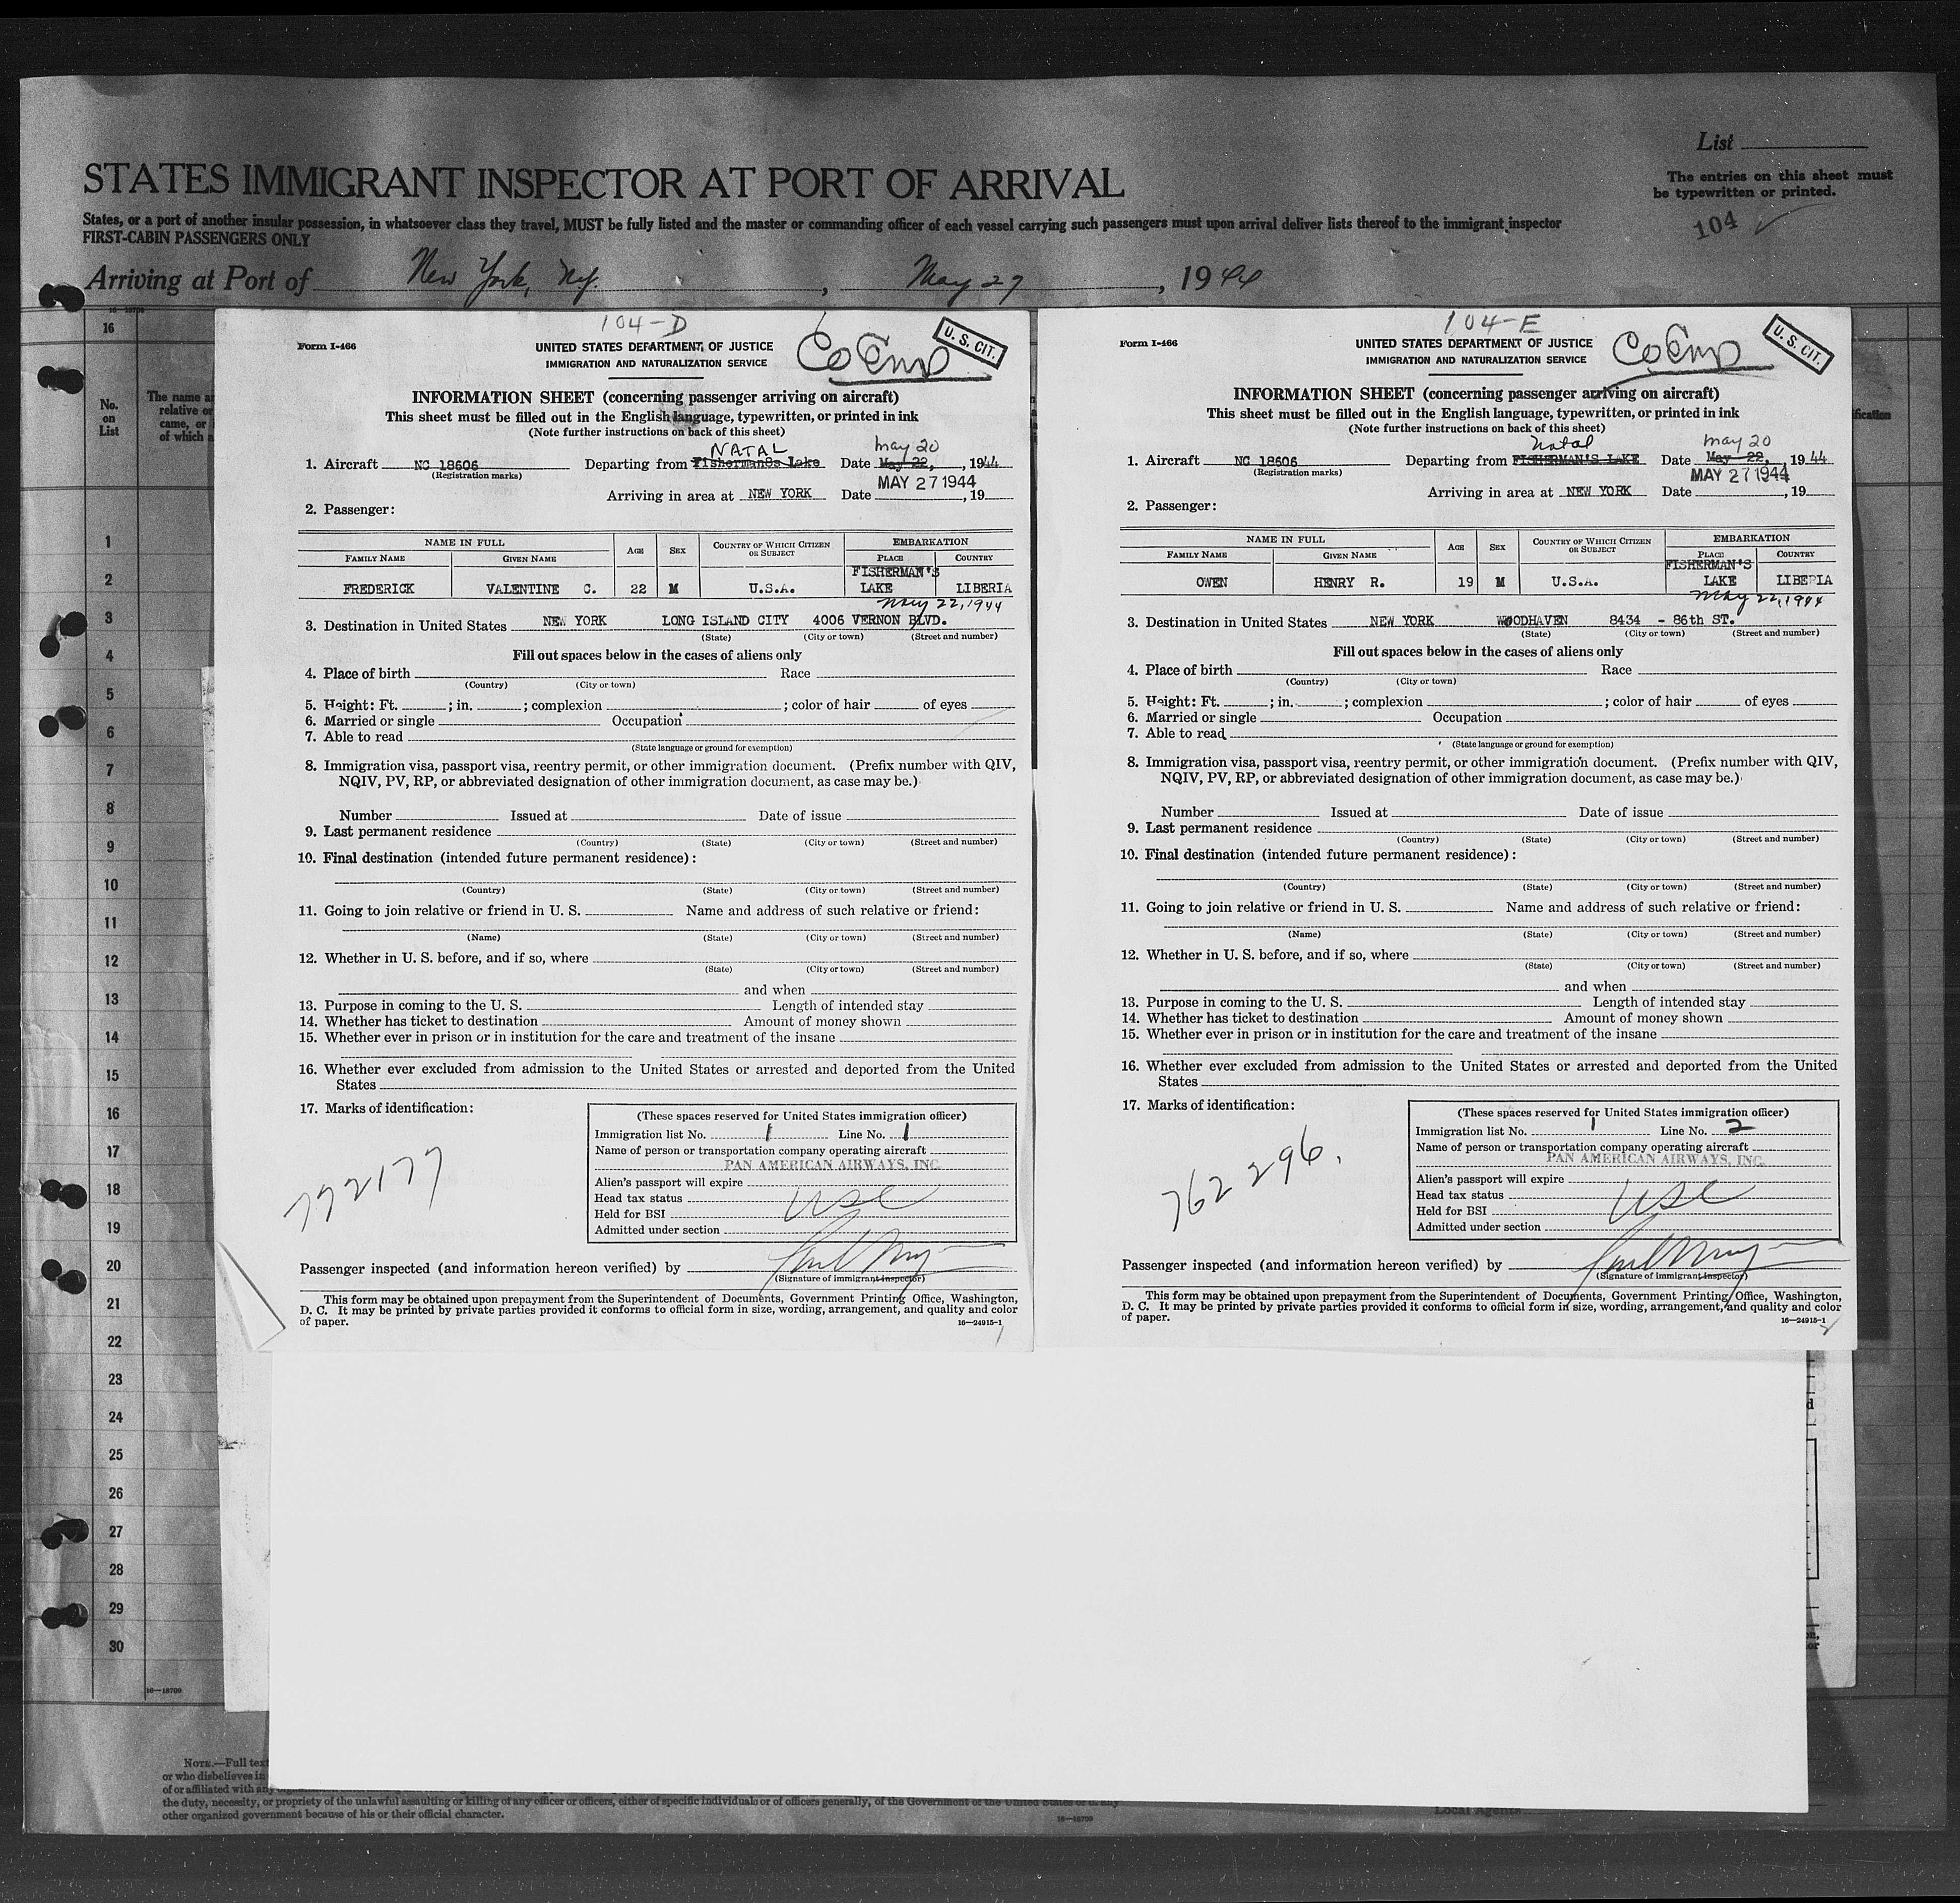 List
STATES IMMIGRANT INSPECTOR AT PORT OF ARRIVAL
The entries on this sheet must
be typewritten or printed.
States, or a port of another insular possession, in whatsoever class they travel, MUST be fully listed and the master or commanding officer of each vessel carrying such passengers must upon arrival deliver lists thereof to the immigrant inspector
FIRST-CABIN PASSENGERS ONLY
104
Arriving at Port of New York, NY. , May 27 , 1944
16
No.
on
List
The name a
relative or
came, or
of which a
1
2
3
4
5
6
7
8
9
10
11
12
13
14
15
16
17
18
19
20
21
22
23
24
25
26
27
28
29
30
16—18709
104-D
Form I-466
UNITED STATES DEPARTMENT OF JUSTICE
IMMIGRATION AND NATURALIZATION SERVICE
Co Emp
U. S. CIT.
INFORMATION SHEET (concerning passenger arriving on aircraft)
This sheet must be filled out in the English language, typewritten, or printed in ink
(Note further instructions on back of this sheet)
NATAL May 20
1. Aircraft NC 18606 Departing from Fisherman8s Lake Date May 22, , 1944
(Registration marks)
MAY 27 1944
Arriving in area at NEW YORK Date , 19
2. Passenger:
NAME IN FULL AGE SEX COUNTRY OF WHICH CITIZEN OR SUBJECT EMBARKATION
FAMILY NAME GIVEN NAME PLACE COUNTRY
FISHERMAN'S
FREDERICK VALENTINE C. 22 M U.S.A. LAKE LIBERIA
May 22, 1944
3. Destination in United States NEW YORK LONG ISLAND CITY 4006 VERNON BLVD.
(State) (City or town) (Street and number)
Fill out spaces below in the cases of aliens only
4. Place of birth Race
(Country) (City or town)
5. Height: Ft. ; in. ; complexion ; color of hair of eyes
6. Married or single Occupation
7. Able to read
(State language or ground for exemption)
8. Immigration visa, passport visa, reentry permit, or other immigration document. (Prefix number with QIV,
NQIV, PV, RP, or abbreviated designation of other immigration document, as case may be.)
Number Issued at Date of issue
9. Last permanent residence
(Country) (State) (City or town) (Street and number)
10. Final destination (intended future permanent residence):
(Country) (State) (City or town) (Street and number)
11. Going to join relative or friend in U. S. Name and address of such relative or friend:
(Name) (State) (City or town) (Street and number)
12. Whether in U. S. before, and if so, where
(State) (City or town) (Street and number)
and when
13. Purpose in coming to the U. S. Length of intended stay
14. Whether has ticket to destination Amount of money shown
15. Whether ever in prison or in institution for the care and treatment of the insane
16. Whether ever excluded from admission to the United States or arrested and deported from the United
States
17. Marks of identification:
792177
(These spaces reserved for United States immigration officer)
Immigration list No. 1 Line No. 1
Name of person or transportation company operating aircraft
PAN AMERICAN AIRWAYS, INC.
Alien's passport will expire
Head tax status USC
Held for BSI
Admitted under section
Passenger inspected (and information hereon verified) by
(Signature of immigrant inspector)
This form may be obtained upon prepayment from the Superintendent of Documents, Government Printing Office, Washington,
D. C. It may be printed by private parties provided it conforms to official form in size, wording, arrangement, and quality and color
of paper.
16—24915-1
1
104-E
Form I-466
UNITED STATES DEPARTMENT OF JUSTICE
IMMIGRATION AND NATURALIZATION SERVICE
Co Emp
U. S. CIT.
INFORMATION SHEET (concerning passenger arriving on aircraft)
This sheet must be filled out in the English language, typewritten, or printed in ink
(Note further instructions on back of this sheet)
Natal May 20
1. Aircraft NC 18606 Departing from FISHERMAN'S LAKE Date May 22, , 1944
(Registration marks)
MAY 27 1944
Arriving in area at NEW YORK Date , 19
2. Passenger:
NAME IN FULL AGE SEX COUNTRY OF WHICH CITIZEN OR SUBJECT EMBARKATION
FAMILY NAME GIVEN NAME PLACE COUNTRY
FISHERMAN'S
OWEN HENRY R. 19 M U.S.A. LAKE LIBERIA
May 22, 1944
3. Destination in United States NEW YORK WOODHAVEN 8434 - 86th ST.
(State) (City or town) (Street and number)
Fill out spaces below in the cases of aliens only
4. Place of birth Race
(Country) (City or town)
5. Height: Ft. ; in. ; complexion ; color of hair of eyes
6. Married or single Occupation
7. Able to read
(State language or ground for exemption)
8. Immigration visa, passport visa, reentry permit, or other immigration document. (Prefix number with QIV,
NQIV, PV, RP, or abbreviated designation of other immigration document, as case may be.)
Number Issued at Date of issue
9. Last permanent residence
(Country) (State) (City or town) (Street and number)
10. Final destination (intended future permanent residence):
(Country) (State) (City or town) (Street and number)
11. Going to join relative or friend in U. S. Name and address of such relative or friend:
(Name) (State) (City or town) (Street and number)
12. Whether in U. S. before, and if so, where
(State) (City or town) (Street and number)
and when
13. Purpose in coming to the U. S. Length of intended stay
14. Whether has ticket to destination Amount of money shown
15. Whether ever in prison or in institution for the care and treatment of the insane
16. Whether ever excluded from admission to the United States or arrested and deported from the United
States
17. Marks of identification:
762296.
(These spaces reserved for United States immigration officer)
Immigration list No. 1 Line No. 2
Name of person or transportation company operating aircraft
PAN AMERICAN AIRWAYS, INC.
Alien's passport will expire
Head tax status USC
Held for BSI
Admitted under section
Passenger inspected (and information hereon verified) by
(Signature of immigrant inspector)
This form may be obtained upon prepayment from the Superintendent of Documents, Government Printing Office, Washington,
D. C. It may be printed by private parties provided it conforms to official form in size, wording, arrangement, and quality and color
of paper.
16—24915-1
2
NOTE.—Full text
or who disbelieves in
of or affiliated with any
the duty, necessity, or propriety of the unlawful assaulting or killing of any officer or officers, either of specific individuals or of officers generally, of the Government of the United States or of any
other organized government because of his or their official character.
16—18709
Local Agents